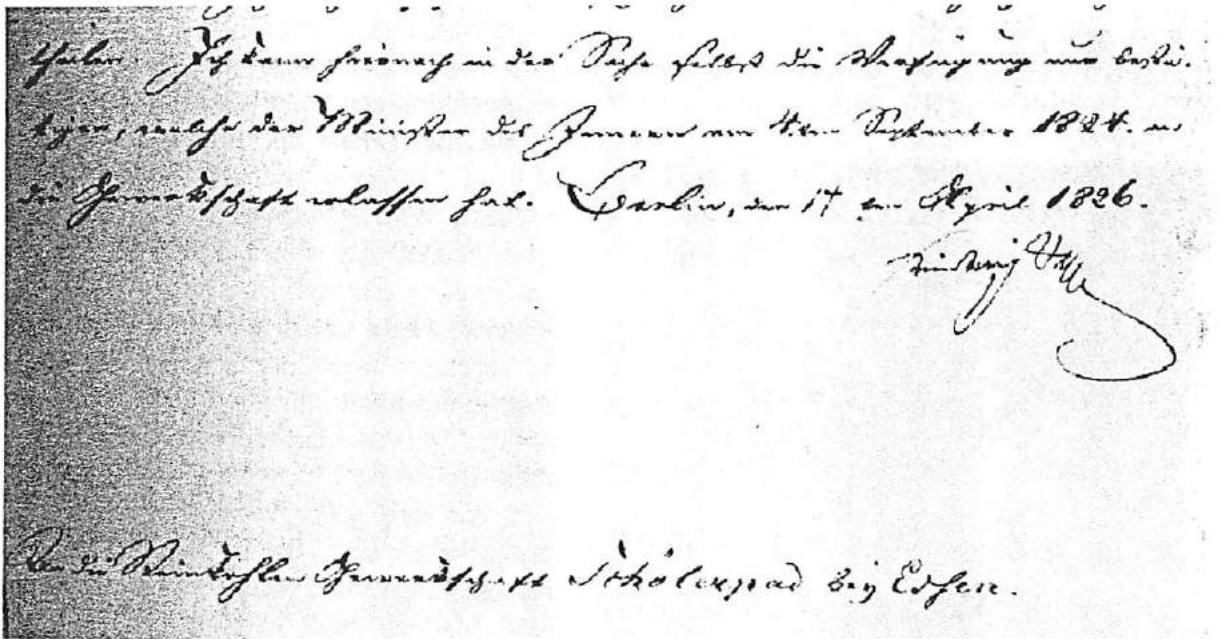 theilen. Ich kann hiernach in der Sache selbst die Verfügung nur bestä-
tigen, welche der Minister des Innern am 4ten September 1824. an
die Gewerkschaft erlassen hat. Berlin, den 17 ten April 1826.
An die Steinkohlen Gewerkschaft Schölerpad bey Essen.